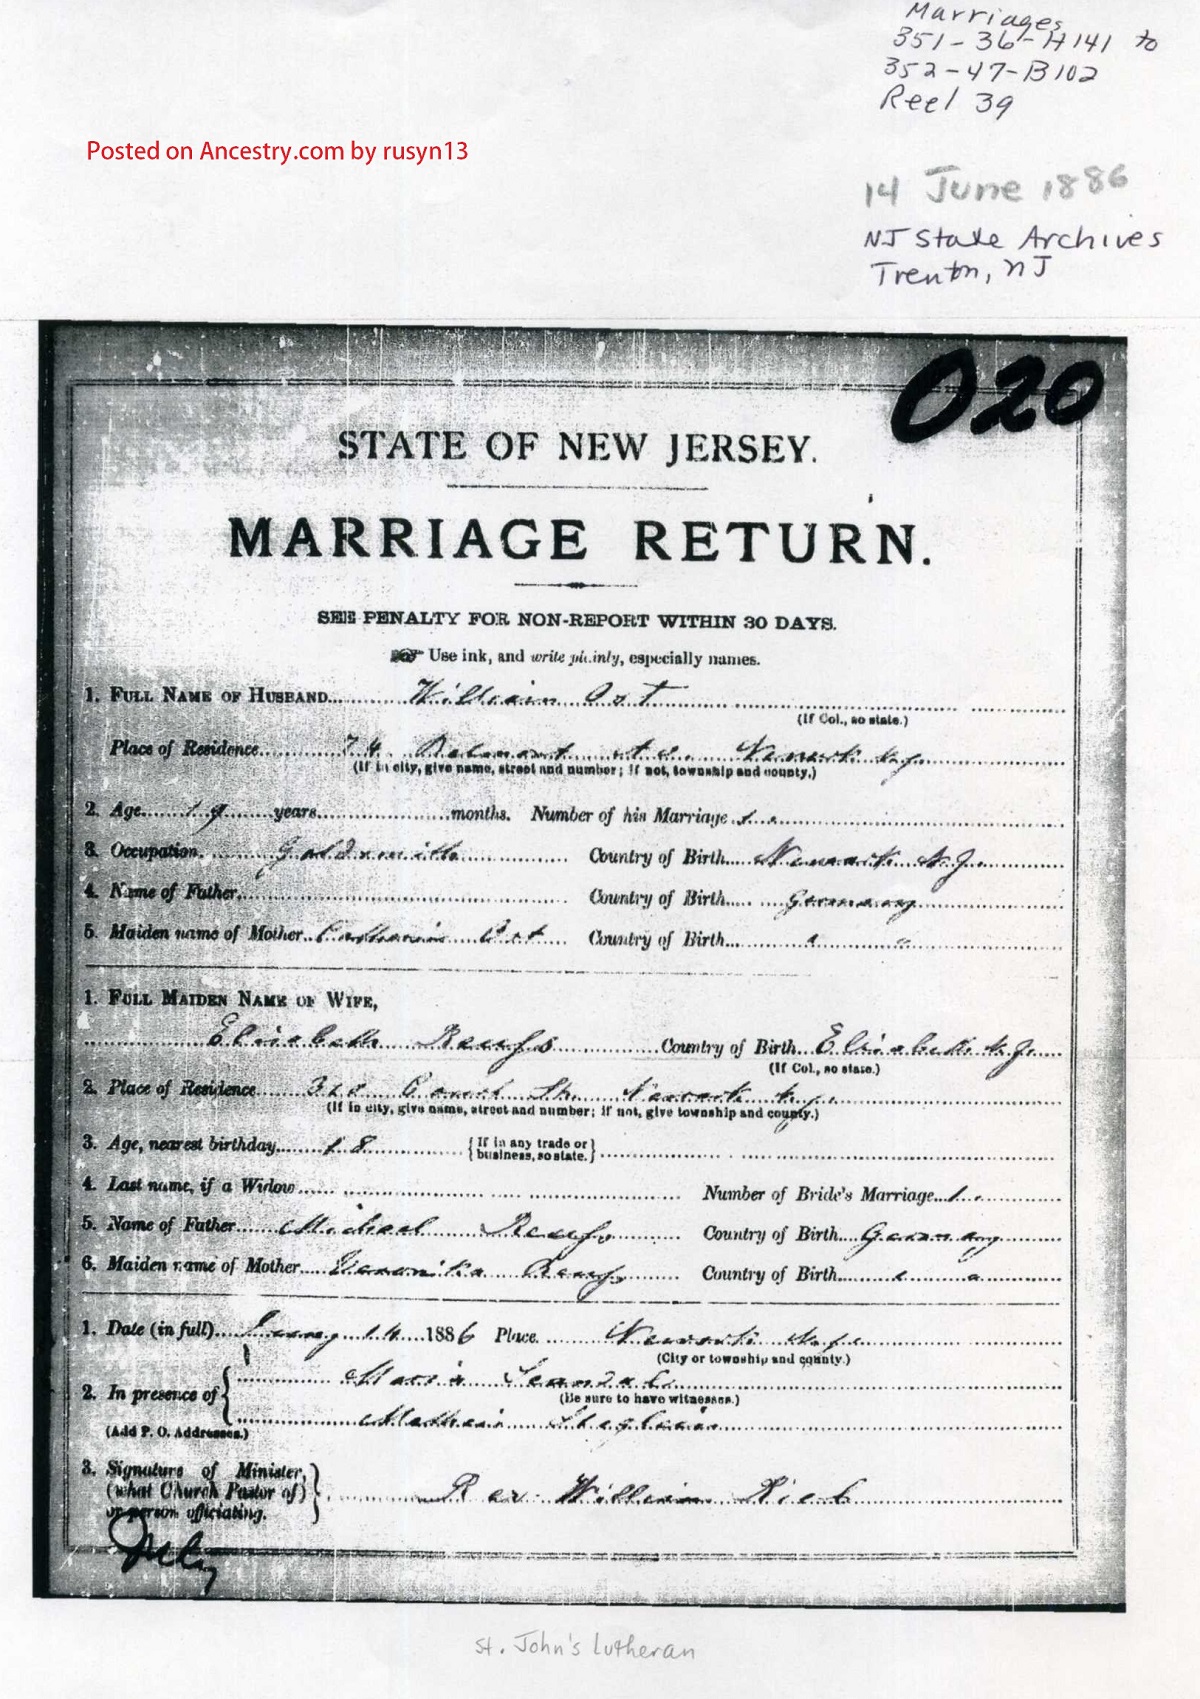 Marriages
351-36-H141 to
352-47-B102
Reel 39
Posted on Ancestry.com by rusyn13
14 June 1886
NJ State Archives
Trenton, NJ
020
STATE OF NEW JERSEY.
MARRIAGE RETURN.
SEE PENALTY FOR NON-REPORT WITHIN 30 DAYS.
Use ink, and write plainly, especially names.
1. FULL NAME OF HUSBAND William Ort
(If Col., so state.)
Place of Residence 74 Belmont Newark N.J.
(If in city, give name, street and number; if not, township and county.)
2. Age 19 years months. Number of his Marriage 1.
3. Occupation. Goldsmith Country of Birth Newark N.J.
4. Name of Father Country of Birth Germany
5. Maiden name of Mother Ort Country of Birth " "
1. FULL MAIDEN NAME OF WIFE,
Elisabeth Country of Birth Elisabeth N.J.
(If Col., so state.)
2. Place of Residence Court Newark N.J.
(If in city, give name, street and number; if not, give township and county.)
3. Age, nearest birthday 18 {If in any trade or business, so state.}
4. Last name, if a Widow Number of Bride's Marriage 1.
5. Name of Father Michael Country of Birth Germany
6. Maiden name of Mother Veronika Country of Birth " "
1. Date (in full) 14 1886 Place Newark N.J.
(City or township and county.)
2. In presence of { Maria
(Be sure to have witnesses.)
(Add P. O. Addresses.)
3. Signature of Minister,
(what Church Pastor of)
or person officiating. } Rev. William
St. John's Lutheran